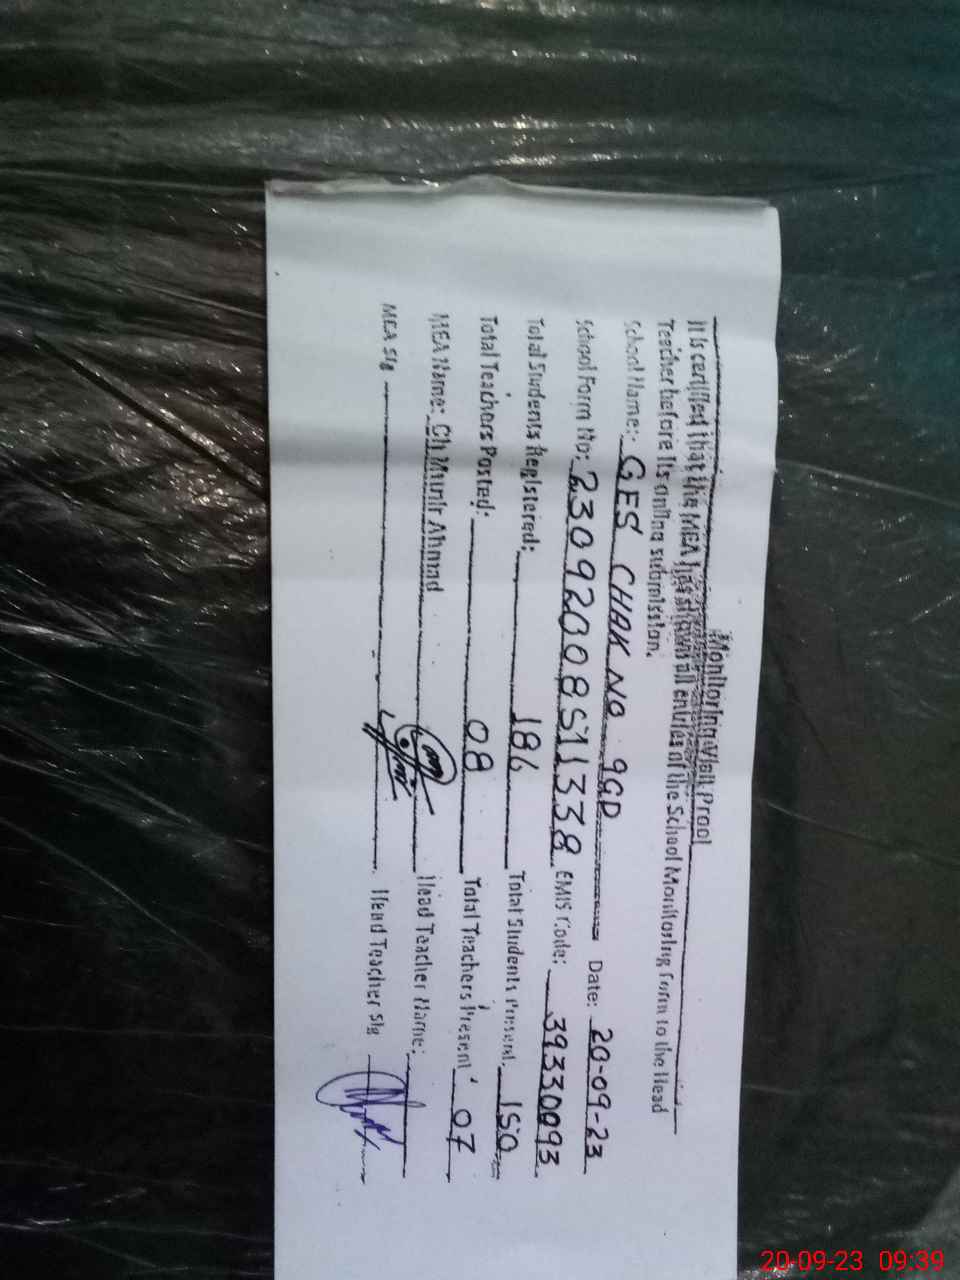 Monitoring Visit Proof
It is certified that the MEA has shown all entries of the School Monitoring Form to the Head
Teacher before its online submission.
School Name:- GES CHAK NO 9GD Date: 20-09-23
School Form No: 23092008511338 EMIS Code: 39330093
Total Students Registered: 186 Total Students Present. 150
Total Teachers Posted: 08 Total Teachers Present 07
MEA Name: Ch Munir Ahmad Head Teacher Name:
MEA Sig Head Teacher Sig
20-09-23 09:39